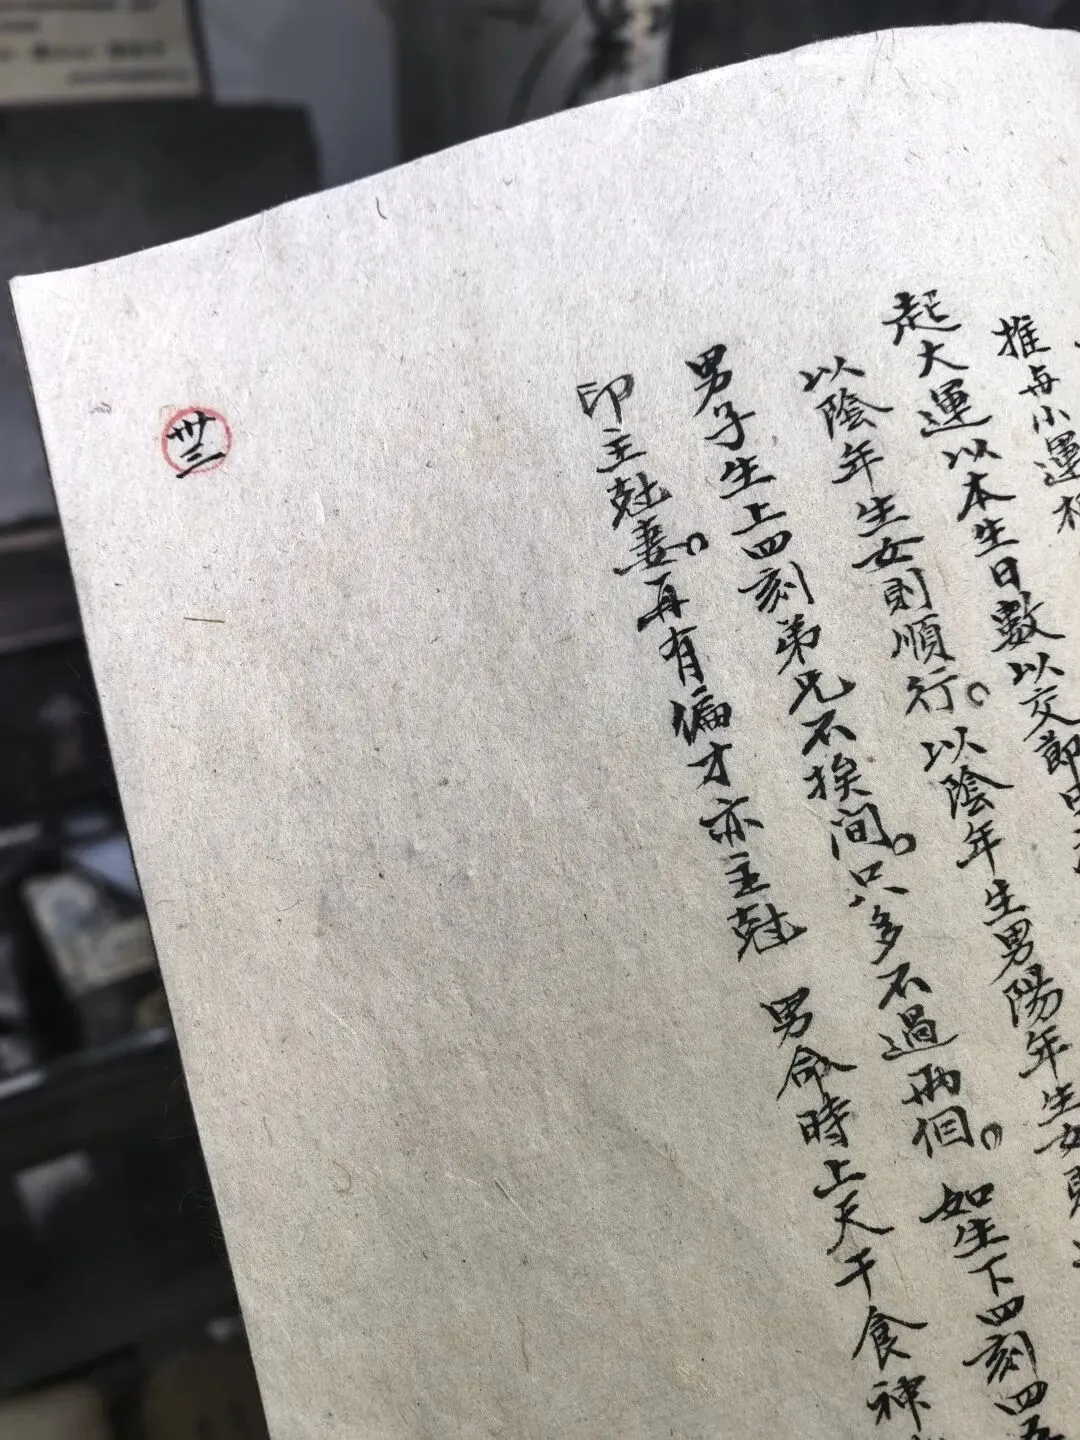 推与小運
起大運以本生日數以交節
以陰年生女則順行。以陰年生男陽年生女則
男子生上四刻弟兄不挨间。只多不過兩個。如生下四刻四五
印主尅妻。再有偏才亦主尅 男命時上天干食神
卅三